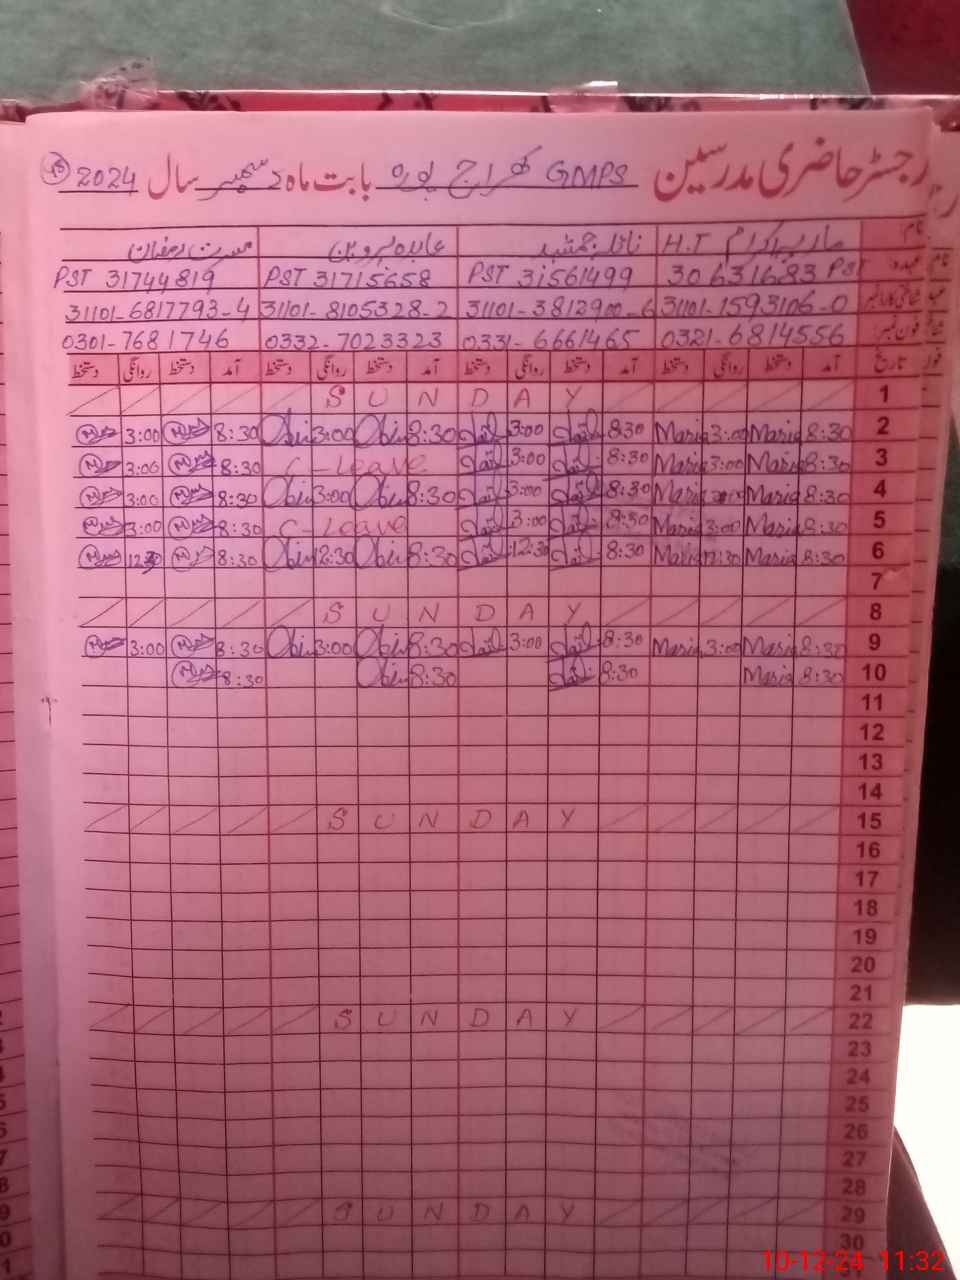 رجسٹر حاضری مدرسین GMPS کھراج پورہ بابت ماہ دسمبر سال 2024
نام: ماریہ اکرام H.T نائلہ جمشید عابدہ پروین مسرت رمضان
عہدہ: 30631683 PST PST 31561499 PST 31715658 PST 31744819
31101-1593106-0 31101-3812900-6 31101-8105328-2 31101-6817793-4
فون نمبر: 0321-6814556 0331-6661465 0332-7023323 0301-7681746
تاریخ آمد دستخط روانگی دستخط آمد دستخط روانگی دستخط آمد دستخط روانگی دستخط آمد دستخط روانگی دستخط
1 S U N D A Y
2 8:30 Maria 3:00 Maria 8:30 3:00 8:30 3:00 8:30 3:00
3 8:30 Maria 3:00 Maria 8:30 3:00 C-Leave 8:30 3:00
4 8:30 Maria 3:00 Maria 8:30 3:00 8:30 3:00 8:30 3:00
5 8:30 Maria 3:00 Maria 8:30 3:00 C-Leave 8:30 3:00
6 8:30 Maria 12:30 Maria 8:30 12:30 8:30 12:30 8:30 12:30
7
8 S U N D A Y
9 8:30 Maria 3:00 Maria 8:30 3:00 8:30 3:00 8:30 3:00
10 8:30 Maria 8:30 8:30 8:30
11
12
13
14
15 S U N D A Y
16
17
18
19
20
21
22 S U N D A Y
23
24
25
26
27
28
29 S U N D A Y
30
10-12-24 11:32